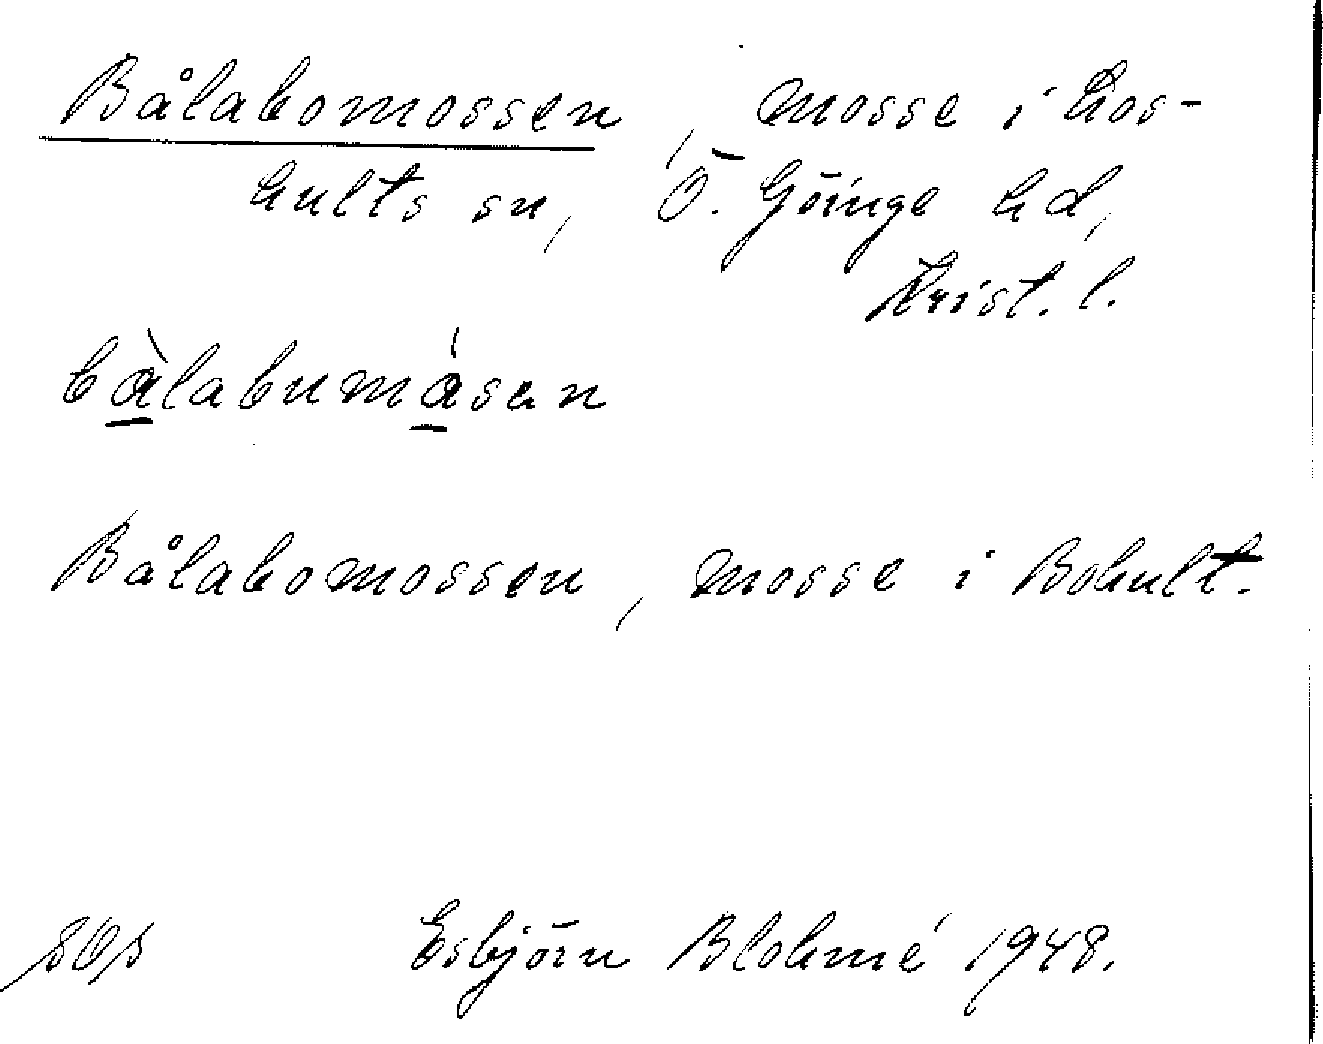 Bålabomossen, mosse i hos-
hults sn, Ö. Göinge hd,
Krist. l.
bàlabumásen
Bålabomossen, mosse i Bohult.
Esbjörn Blohmé 1948.